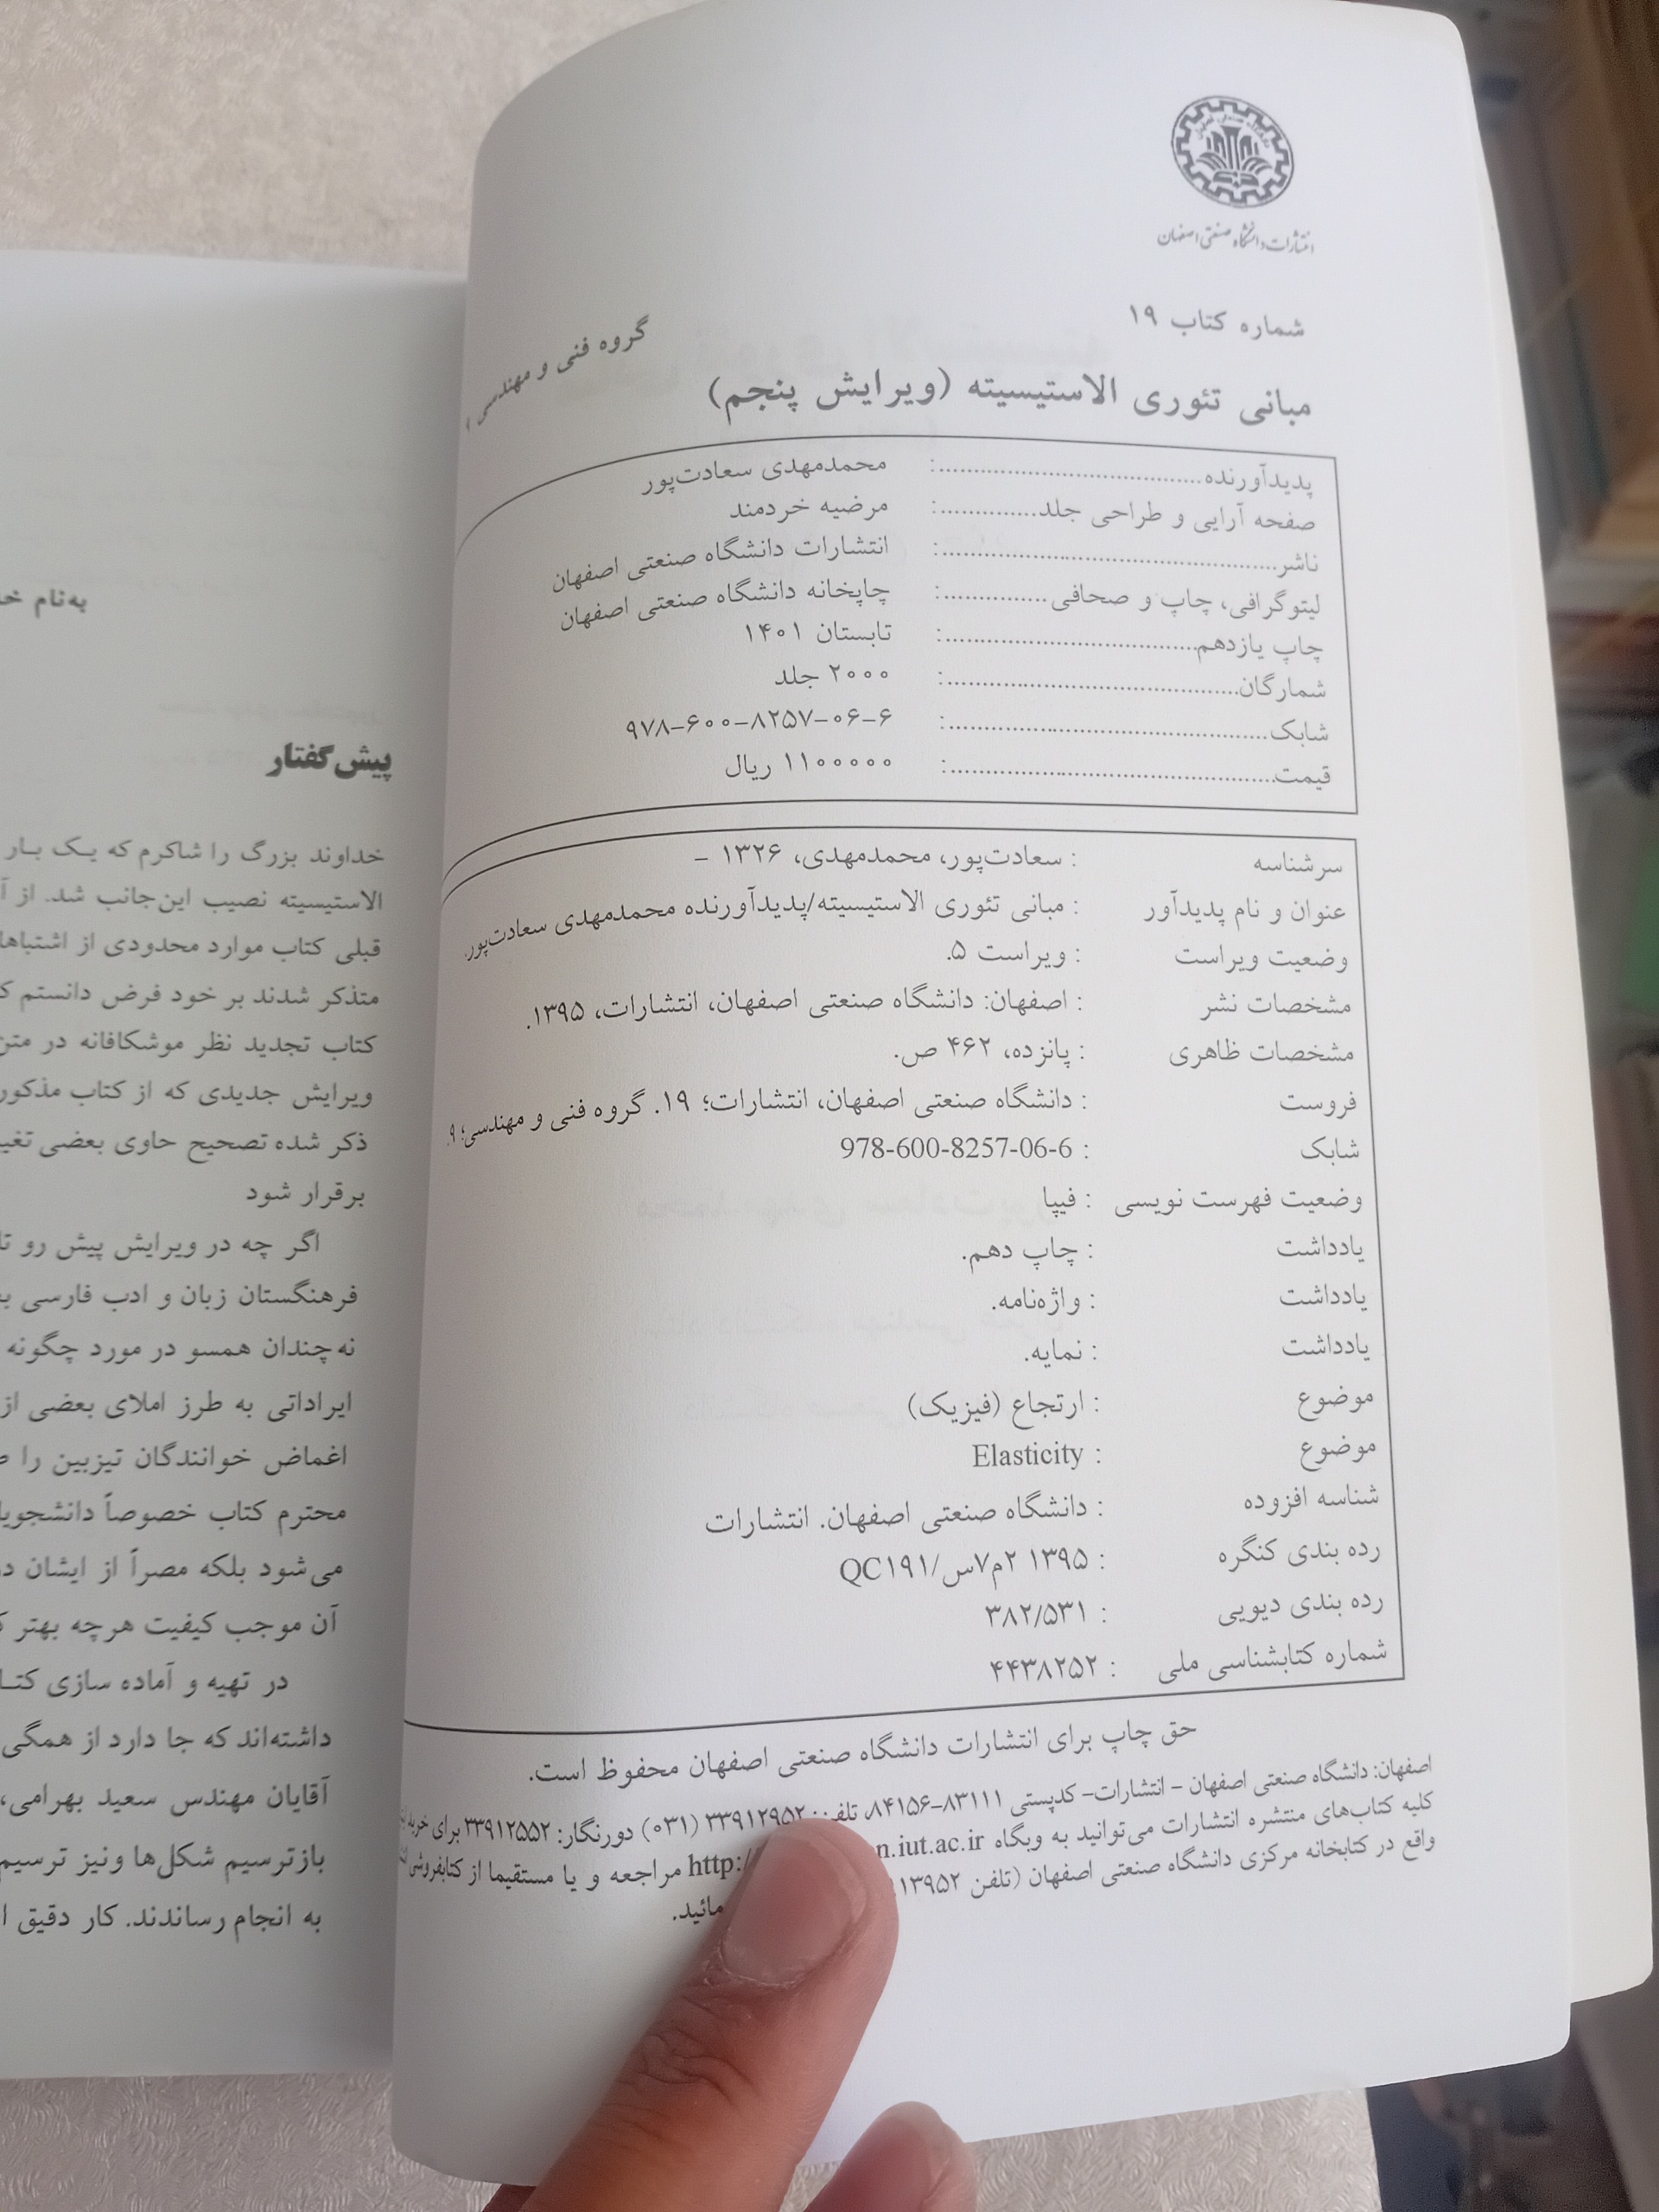 انتشارات دانشگاه صنعتی اصفهان
شماره کتاب ۱۹
گروه فنی و مهندسی
مبانی تئوری الاستیسیته (ویرایش پنجم)
پدیدآورنده......................................: محمدمهدی سعادت‌پور
صفحه آرایی و طراحی جلد..............: مرضیه خردمند
ناشر................................................: انتشارات دانشگاه صنعتی اصفهان
لیتوگرافی، چاپ و صحافی...............: چاپخانه دانشگاه صنعتی اصفهان
چاپ یازدهم....................................: تابستان ۱۴۰۱
شمارگان..........................................: ۲۰۰۰ جلد
شابک..............................................: ۹۷۸-۶۰۰-۸۲۵۷-۰۶-۶
قیمت...............................................: ۱۱۰۰۰۰۰ ریال
سرشناسه : سعادت‌پور، محمدمهدی، ۱۳۲۶ -
عنوان و نام پدیدآور : مبانی تئوری الاستیسیته/پدیدآورنده محمدمهدی سعادت‌پور.
وضعیت ویراست : ویراست ۵.
مشخصات نشر : اصفهان: دانشگاه صنعتی اصفهان، انتشارات، ۱۳۹۵.
مشخصات ظاهری : پانزده، ۴۶۲ ص.
فروست : دانشگاه صنعتی اصفهان، انتشارات؛ ۱۹. گروه فنی و مهندسی؛ ۹.
شابک : 978-600-8257-06-6
وضعیت فهرست نویسی : فیپا
یادداشت : چاپ دهم.
یادداشت : واژه‌نامه.
یادداشت : نمایه.
موضوع : ارتجاع (فیزیک)
موضوع : Elasticity
شناسه افزوده : دانشگاه صنعتی اصفهان. انتشارات
رده بندی کنگره : ۱۳۹۵ ۲م۷س/QC۱۹۱
رده بندی دیویی : ۳۸۲/۵۳۱
شماره کتابشناسی ملی : ۴۴۳۸۲۵۲
حق چاپ برای انتشارات دانشگاه صنعتی اصفهان محفوظ است.
اصفهان: دانشگاه صنعتی اصفهان - انتشارات- کدپستی ۸۳۱۱۱-۸۴۱۵۶، تلفن: ۳۳۹۱۲۹۵۲ (۰۳۱) دورنگار: ۳۳۹۱۲۵۵۲ برای خرید
کلیه کتاب‌های منتشره انتشارات می‌توانید به وبگاه http:/ n.iut.ac.ir مراجعه و یا مستقیما از کتابفروشی
واقع در کتابخانه مرکزی دانشگاه صنعتی اصفهان (تلفن ۱۳۹۵۲
مائید.
به‌نام
پیش‌گفتار
خداوند بزرگ را شاکرم که یک بار
الاستیسیته نصیب این‌جانب شد. از
قبلی کتاب موارد محدودی از
متذکر شدند بر خود فرض دانستم
کتاب تجدید نظر موشکافانه در متن
ویرایش جدیدی که از کتاب مذکور
ذکر شده تصحیح حاوی بعضی
برقرار شود
اگر چه در ویرایش پیش رو
فرهنگستان زبان و ادب فارسی
نه‌چندان همسو در مورد چگونه
ایراداتی به طرز املای بعضی از
اغماض خوانندگان تیزبین را
محترم کتاب خصوصاً
می‌شود بلکه مصراً از ایشان
آن موجب کیفیت هرچه بهتر
در تهیه و آماده سازی
داشته‌اند که جا دارد از همگی
آقایان مهندس سعید بهرامی،
بازترسیم شکل‌ها ونیز ترسیم
به انجام رساندند. کار دقیق